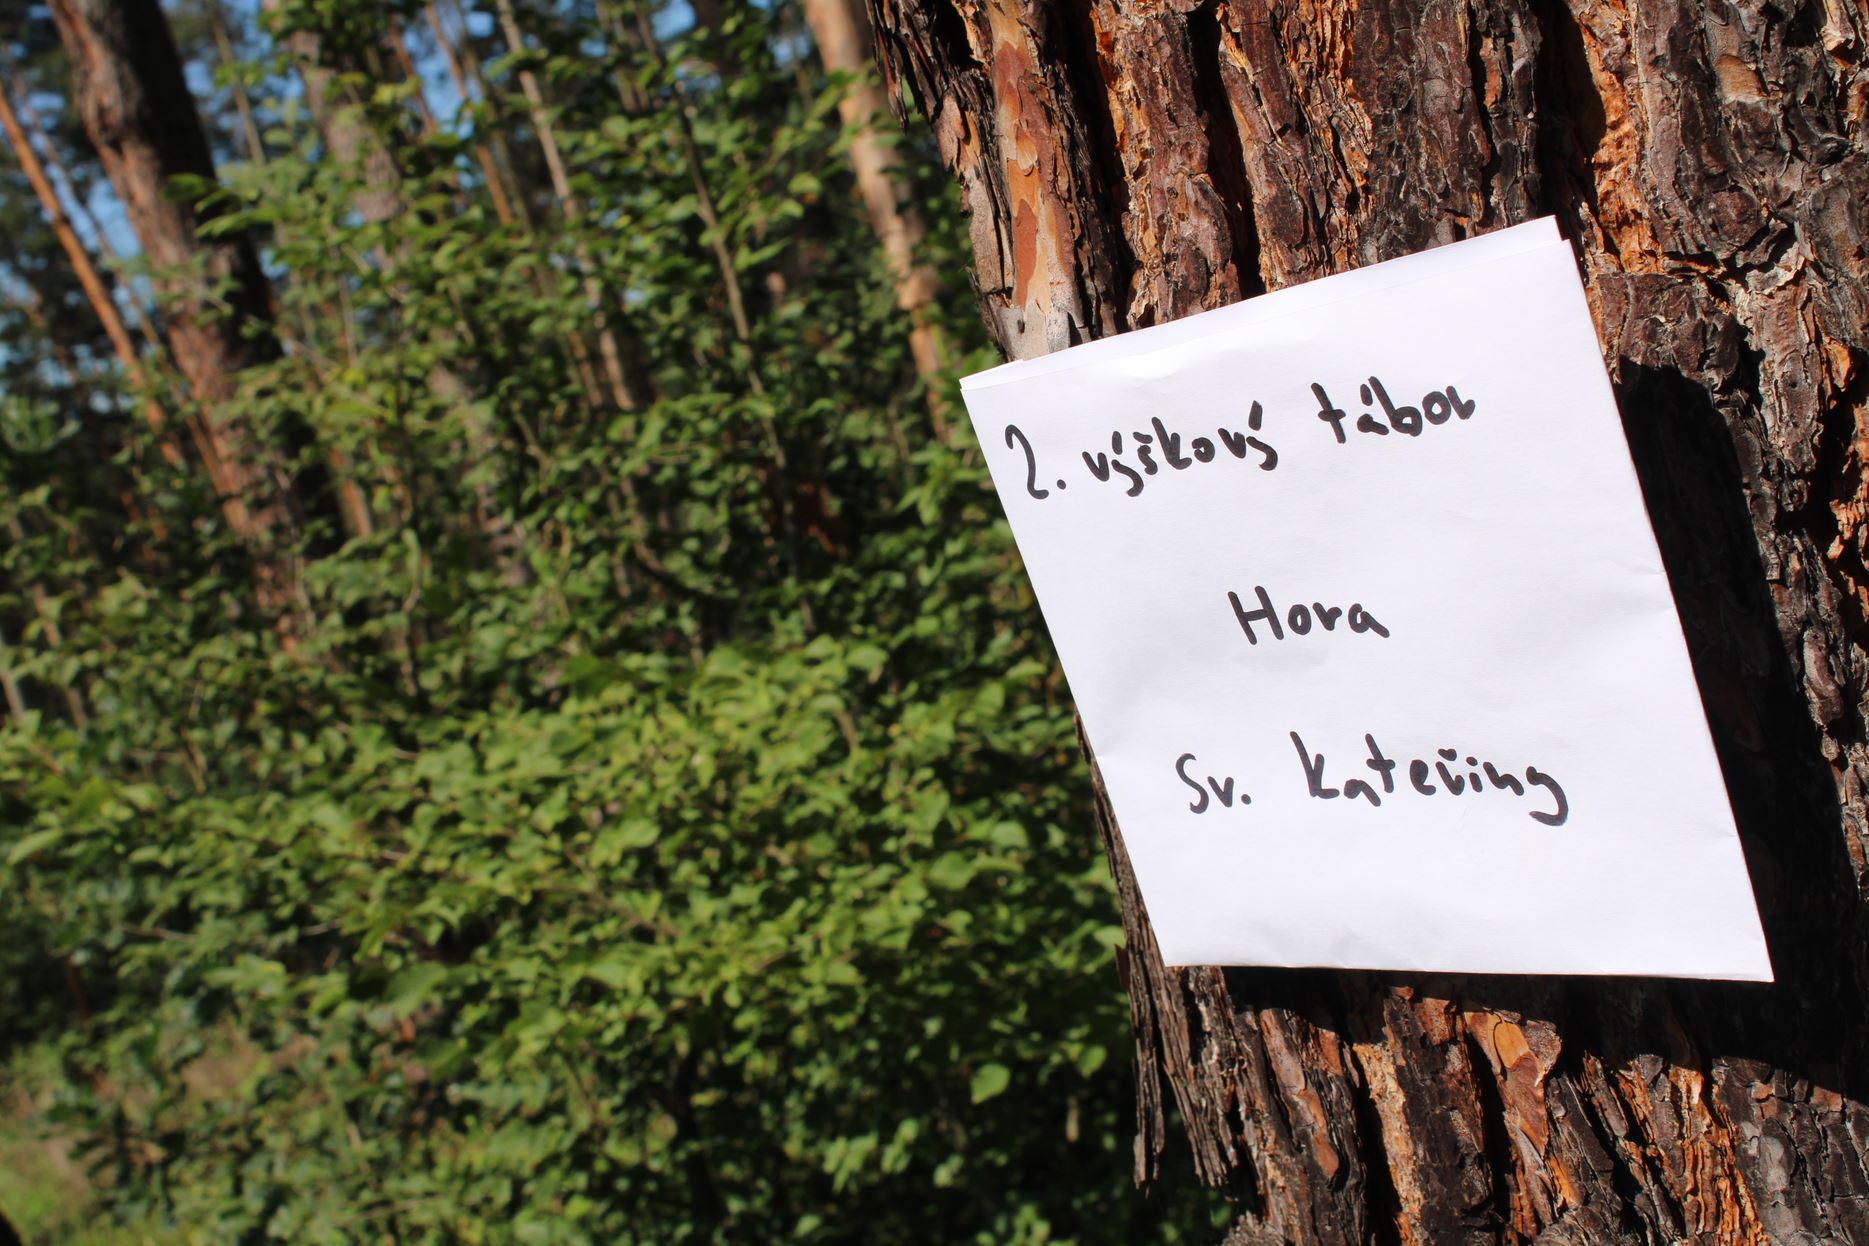 2. výškový tábor
Hora
Sv. Kateřiny